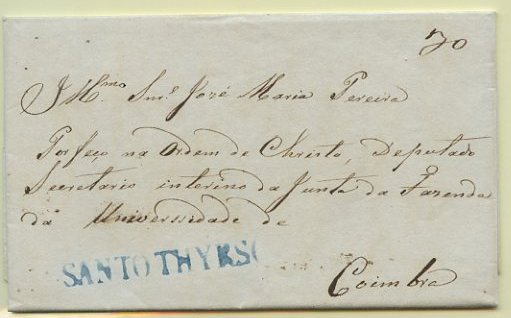 70
Illmo. Snr. José Maria Pereira
Porfeço na Ordem de Christo, Deputado
Secretario interino da Junta da Fazenda
da Universidade de
SANTO THYRSO
Coimbra